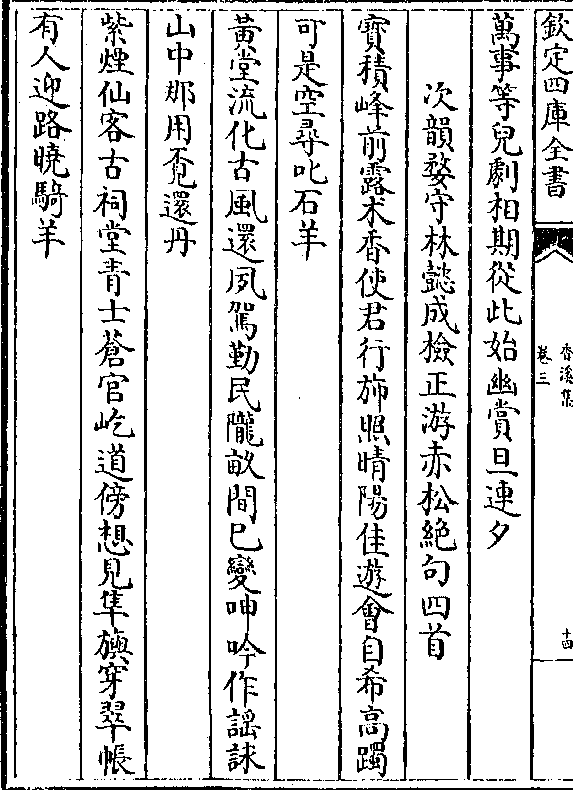 欽定四庫全書
香溪集
卷三
十四
萬事等兒劇相期從此始幽賞旦連夕
次韻婺守林懿成檢正游赤松絶句四首
寳積峰前露术香使君行斾照晴陽佳遊會自希高躅
可是空尋叱石羊
黄堂流化古風還夙駕勤民隴畝間已變呻吟作謡詠
山中那用覔還丹
紫煙仙客古祠堂青士蒼官屹道傍想見隼旟穿翠帳
有人迎路曉騎羊